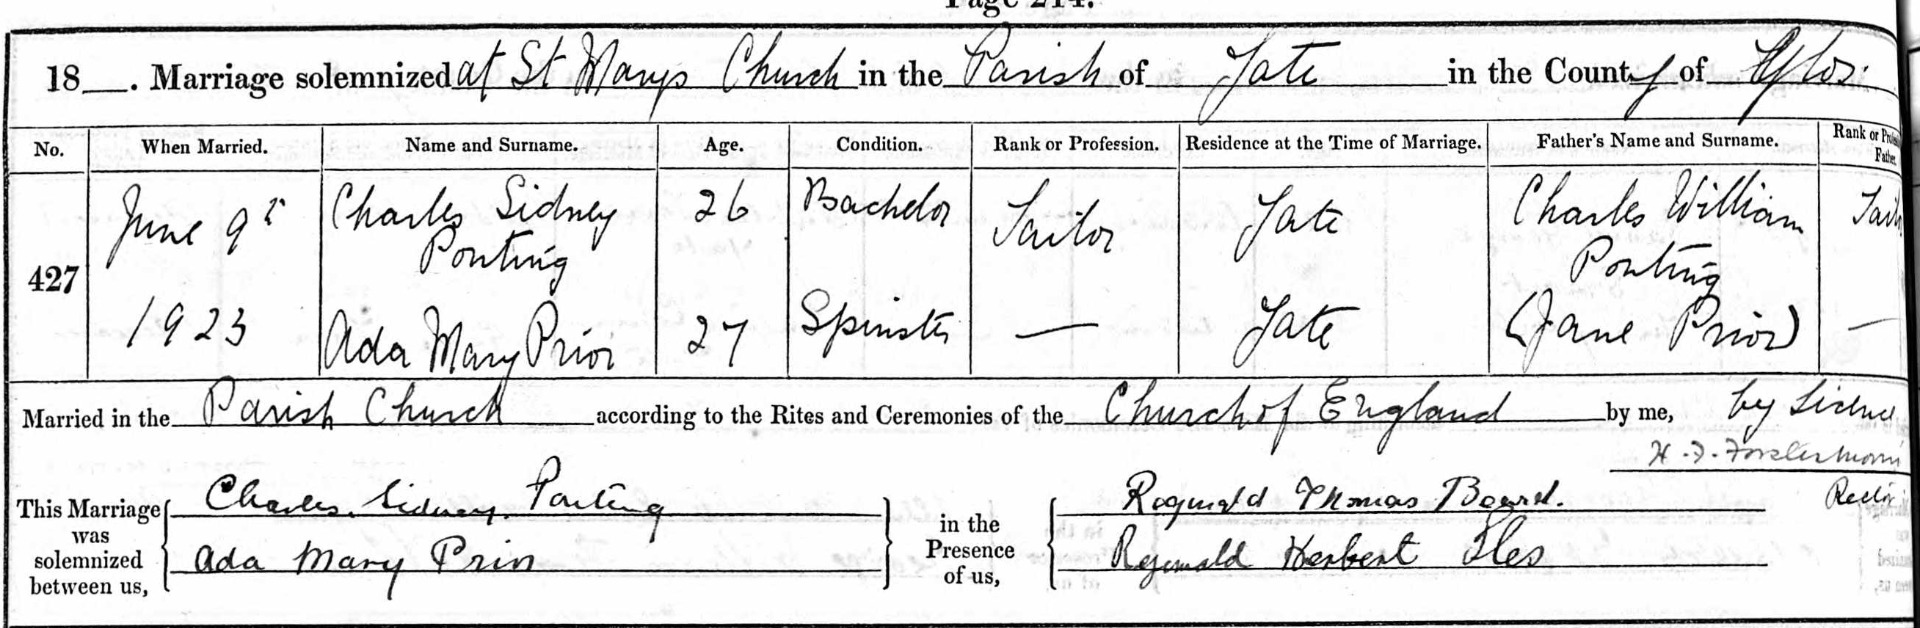 Page 214.
18__. Marriage solemnized at St Marys Church in the Parish of Yate in the County of Glos:
No. When Married. Name and Surname. Age. Condition. Rank or Profession. Residence at the Time of Marriage. Father's Name and Surname. Rank or Father
427 June 9th 1923 Charles Sidney Ponting 26 Bachelor Tailor Yate Charles William Ponting
Ada Mary Prior 27 Spinster — Yate (Jane Prior) —
Married in the Parish Church according to the Rites and Ceremonies of the Church of England by me, by
H. F.
This Marriage was solemnized between us, Charles Sidney Ponting in the Presence of us, Reginald Thomas Beard. Rector
Ada Mary Prior Reginald Herbert Iles